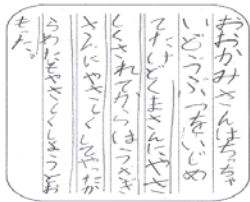 おおかみさんはちっちゃ
いどうぶつをいじめ
てたけどくまさんにやさ
しくされてからはうさぎ
さんにやさしくしてやったか
らわたしもやさしくしようとお
もった。